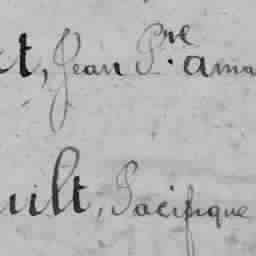 t, Jean P.re ama
uilt, Pacifique